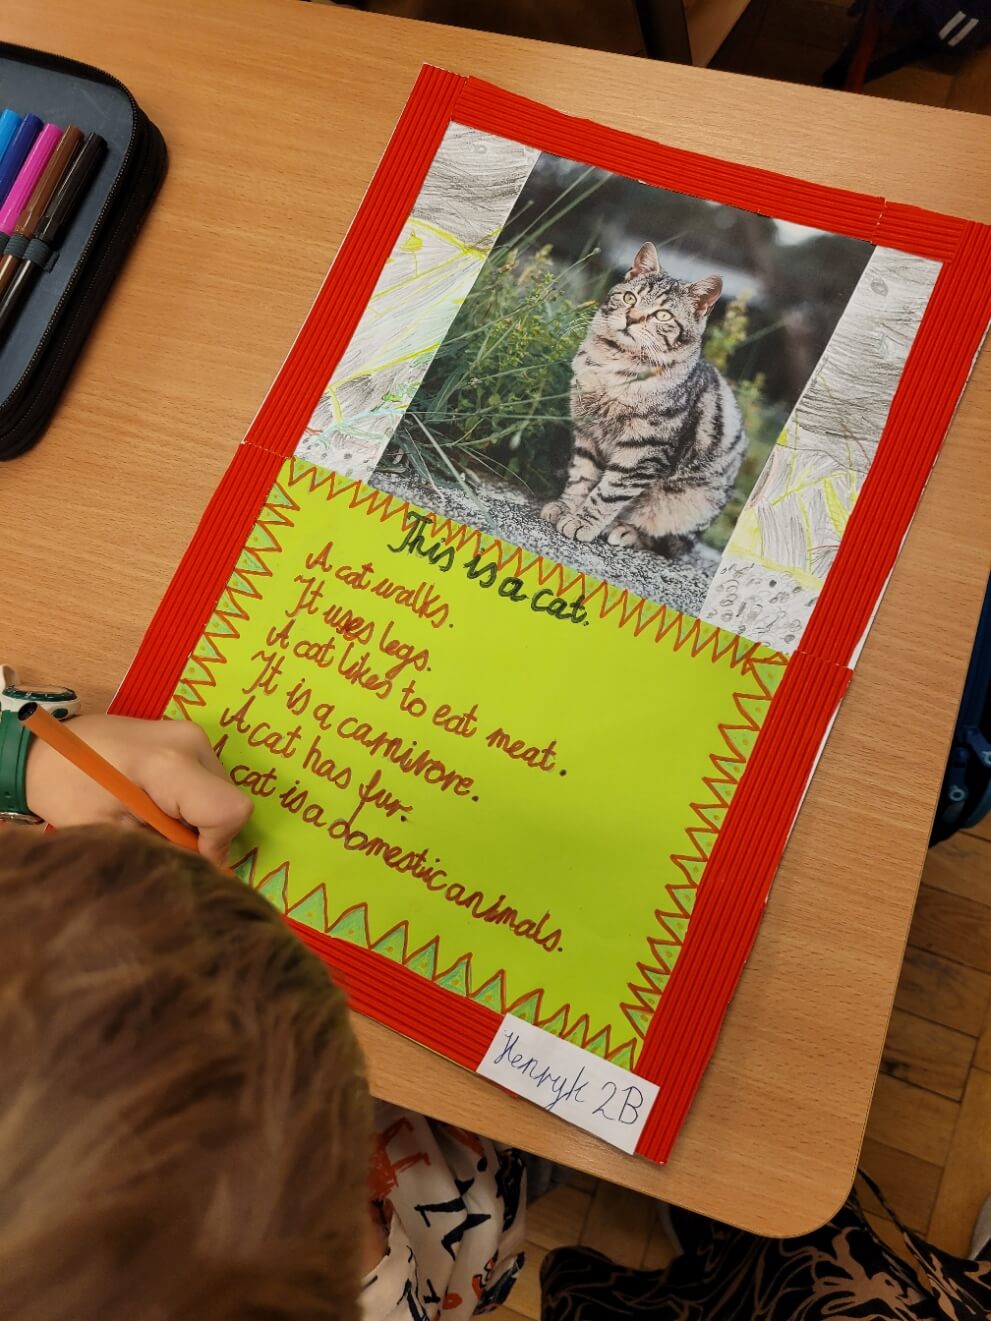 This is a cat.
A cat walks.
It uses legs.
A cat likes to eat meat.
It is a carnivore.
A cat has fur.
A cat is a domestic animals.
Henryk 2B